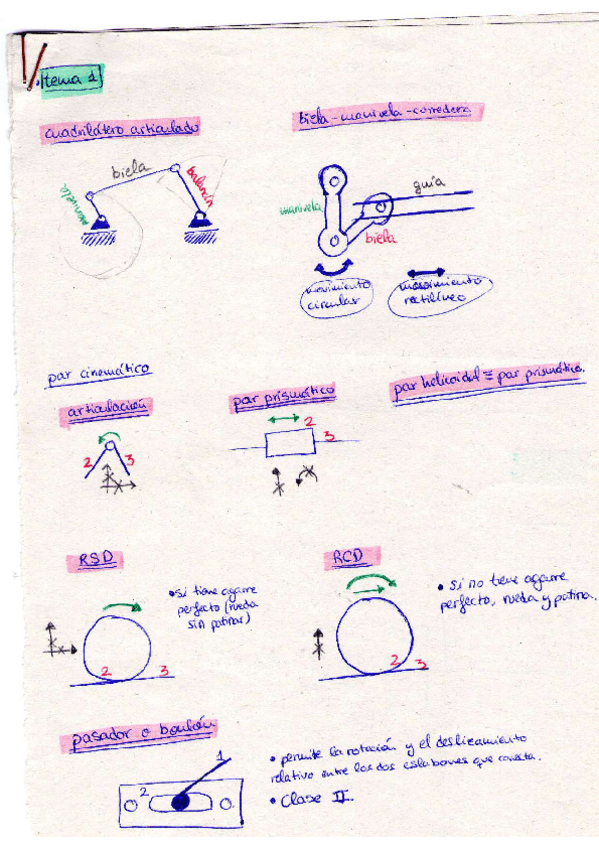 tema 1
cuadrilátero articulado
biela-manivela-corredera
biela
manivela
balancín
guía
manivela
biela
movimiento
circular
movimiento
rectilíneo
par cinemático
articulación
2 3
par prismático
2
3
par helicoidal ≡ par prismático.
RSD
• si tiene agarre
perfecto (rueda
sin patinar)
2 3
RCD
• si no tiene agarre
perfecto, rueda y patina.
2 3
pasador o boulón
1
2
• permite la rotación y el deslizamiento
relativo entre los dos eslabones que conecta.
• Clase II.